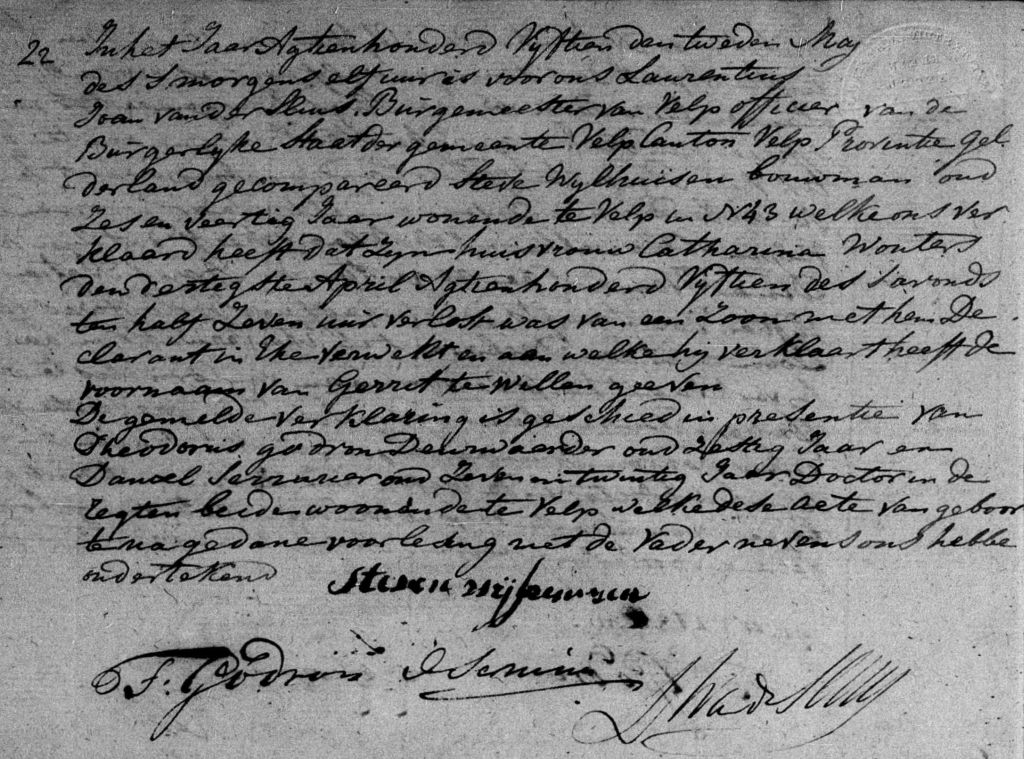 22 In het Jaar Agtienhonderd Vijftien den tweden Maij
des S morgens elf uur is voor ons Laurentius
Joan van der Sluis. Burgemeester van Velp officier van de
Burgerlyke Staat der gemeente Velp Canton Velp Provintie gel
derland gecompareerd Steve Wylhuisen bouwman oud
Zes en veertig Jaar wonende te Velp in N43 welke ons ver
klaard heeft dat Zyn huisvrouw Catharina Wouters
den dertigste April Agtienhonderd Vyftien des S avonds
ten half Zeven uur verlost was van een Zoon met hem De
clarant in Ehe verwekt en aan welke hij verklaart heeft de
voornaam van Gerrit te willen geeven
De gemelde verklaring is geschied in presentie van
Theodorus godron Deurwaarder oud Zestig Jaar en
Daniel oud Zeven en twintig Jaar Doctor in de
regten beide woonende te Velp welke dese acte van geboor
te na gedane voorlesing met de Vader nevens ons hebbe
ondertekend
Steven
F. Godron D